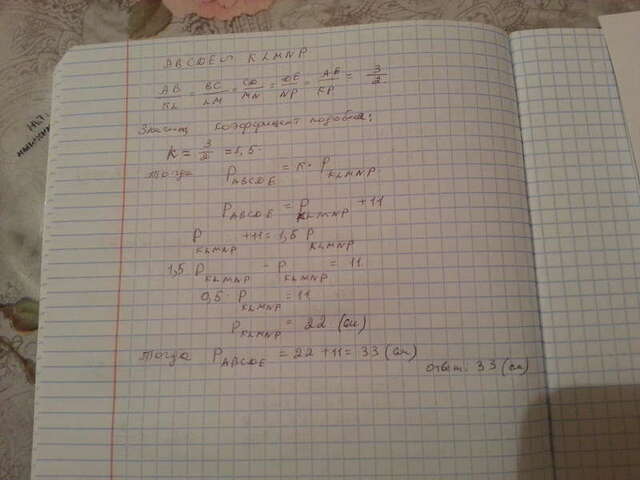 ABCDE ∾ KLMNP
AB/KL = BC/LM = CD/MN = DE/NP = AE/KP = 3/2
Значит коэффициент подобия:
K = 3/2 = 1,5
тогда P ABCDE = K · P KLMNP
P ABCDE = P KLMNP + 11
P KLMNP + 11 = 1,5 P KLMNP
1,5 P KLMNP - P KLMNP = 11
0,5 · P KLMNP = 11
P KLMNP = 22 (см)
тогда P ABCDE = 22 + 11 = 33 (см)
ответ: 33 (см)